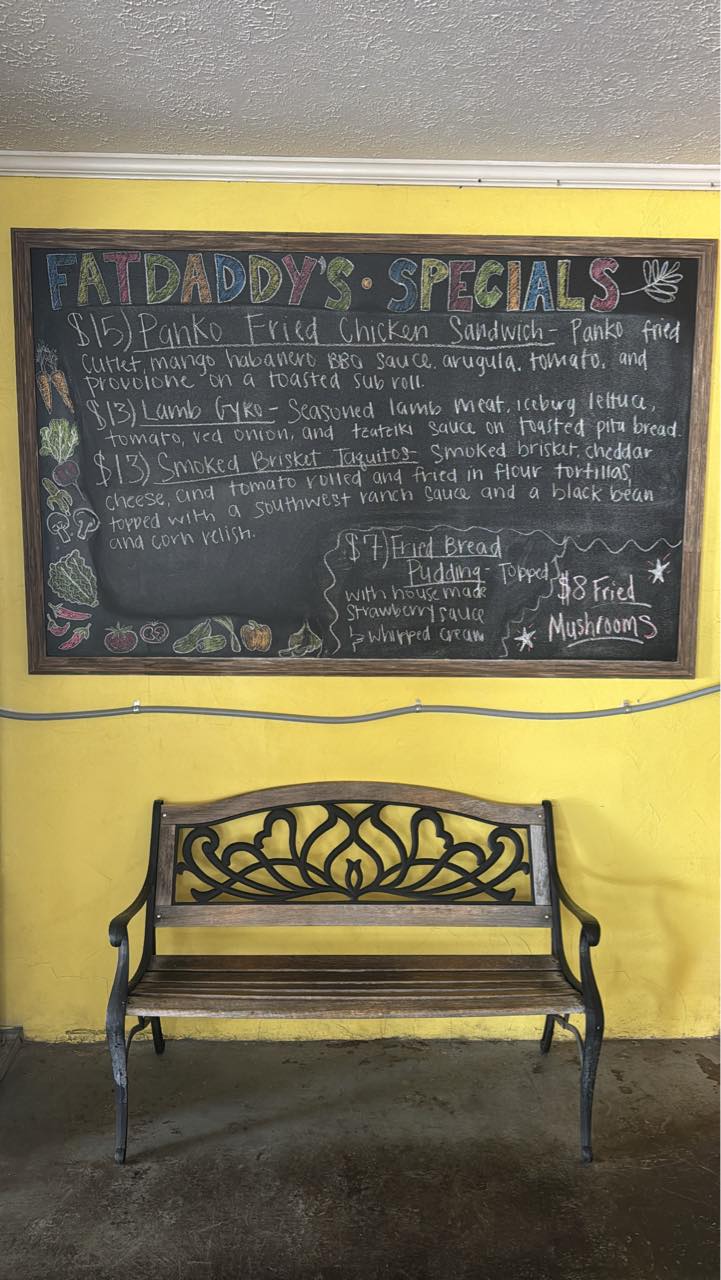 FATDADDY'S · SPECIALS
$15) Panko Fried Chicken Sandwich - Panko fried
cutlet, mango habanero BBQ sauce, arugula, tomato, and
provolone on a toasted sub roll.
$13) Lamb Gyro - Seasoned lamb meat, iceburg lettuce,
tomato, red onion, and tzatziki sauce on toasted pita bread.
$13) Smoked Brisket Taquitos - Smoked brisket, cheddar
cheese, and tomato rolled and fried in flour tortillas,
topped with a southwest ranch sauce and a black bean
and corn relish.
$7) Fried Bread
Pudding - Topped
with house made
strawberry sauce
& whipped cream
$8 Fried
Mushrooms